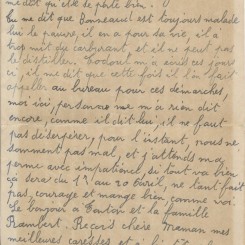 me dit qu'elle se porte bien.
tu me dit que Bonnearest est toujours malade
lui de pauvre, il en a pour sa vie, il a
trop mit du carburant, et il ne peut pas
le distiller. m'a écrit ces jours
ci, il me dit que cette fois il l'on fait
appeller au bureau pour ces demarches,
moi ici, personne ne m'a rien dit
encore, comme il dit lui, il ne faut
pas desesperer, pour l'istant, nous ne
somment pas mal, et j'attends ma
perme avec impatience, si tout va bien
ça sera du 15 au 20 Avril, ne t'en fait
pas, courage et mange bien, comme moi.
Le bonjour a Tonton et la famille
Rambert. Reçois chère Maman mes
meilleures caresses et